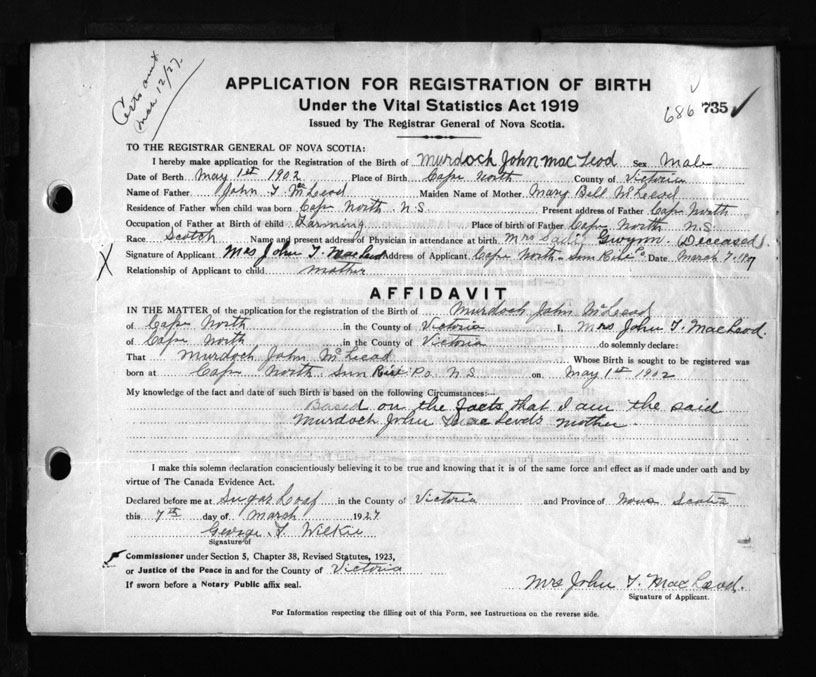 Certs
Mar 12/27.
APPLICATION FOR REGISTRATION OF BIRTH
Under the Vital Statistics Act 1919
Issued by The Registrar General of Nova Scotia.
686 735
TO THE REGISTRAR GENERAL OF NOVA SCOTIA:
I hereby make application for the Registration of the Birth of Murdoch John Mac Leod Sex Male
Date of Berth May 1st 1902 Place of Birth Cape North County of Victoria
Name of Father John T McLeod Maiden Name of Mother Mary Bell McLeod
Residence of Father when child was born Cape North N.S Present address of Father Cape North
Occupation of Father at Birth of child Farming Place of birth of Father Cape North N.S.
Race Scotch Name and present address of Physician in attendance at birth Mrs Gwynn. Deceased.
Signature of Applicant Mrs John T. MacLeod Address of Applicant Cape North Sun Rise Date March 7
Relationship of Applicant to child mother
AFFIDAVIT
IN THE MATTER of the application for the registration of the Birth of Murdoch John McLeod
of Cape North in the County of Victoria I, Mrs John T. MacLeod.
of Cape North in the County of Victoria do solemnly declare:
That Murdoch John McLeod Whose Birth is sought to be registered was
born at Cape North Sun Rise P.O. N.S on May 1st 1902
My knowledge of the fact and date of such Birth is based on the following Circumstances:—
Based on the facts that I am the said
Murdoch John Mac Leods mother.
I make this solemn declaration conscientiously believing it to be true and knowing that it is of the same force and effect as if made under oath and by
virtue of The Canada Evidence Act.
Declared before me at Sugar Loaf in the County of Victoria and Province of Nova Scotia
this 7th day of March 1927
George T. Wilkie
Signature of
Commissioner under Section 5, Chapter 38, Revised Statutes, 1923,
or Justice of the Peace in and for the County of Victoria
If sworn before a Notary Public affix seal.
Mrs John T. MacLeod.
Signature of Applicant.
For Information respecting the filling out of this Form, see Instructions on the reverse side.